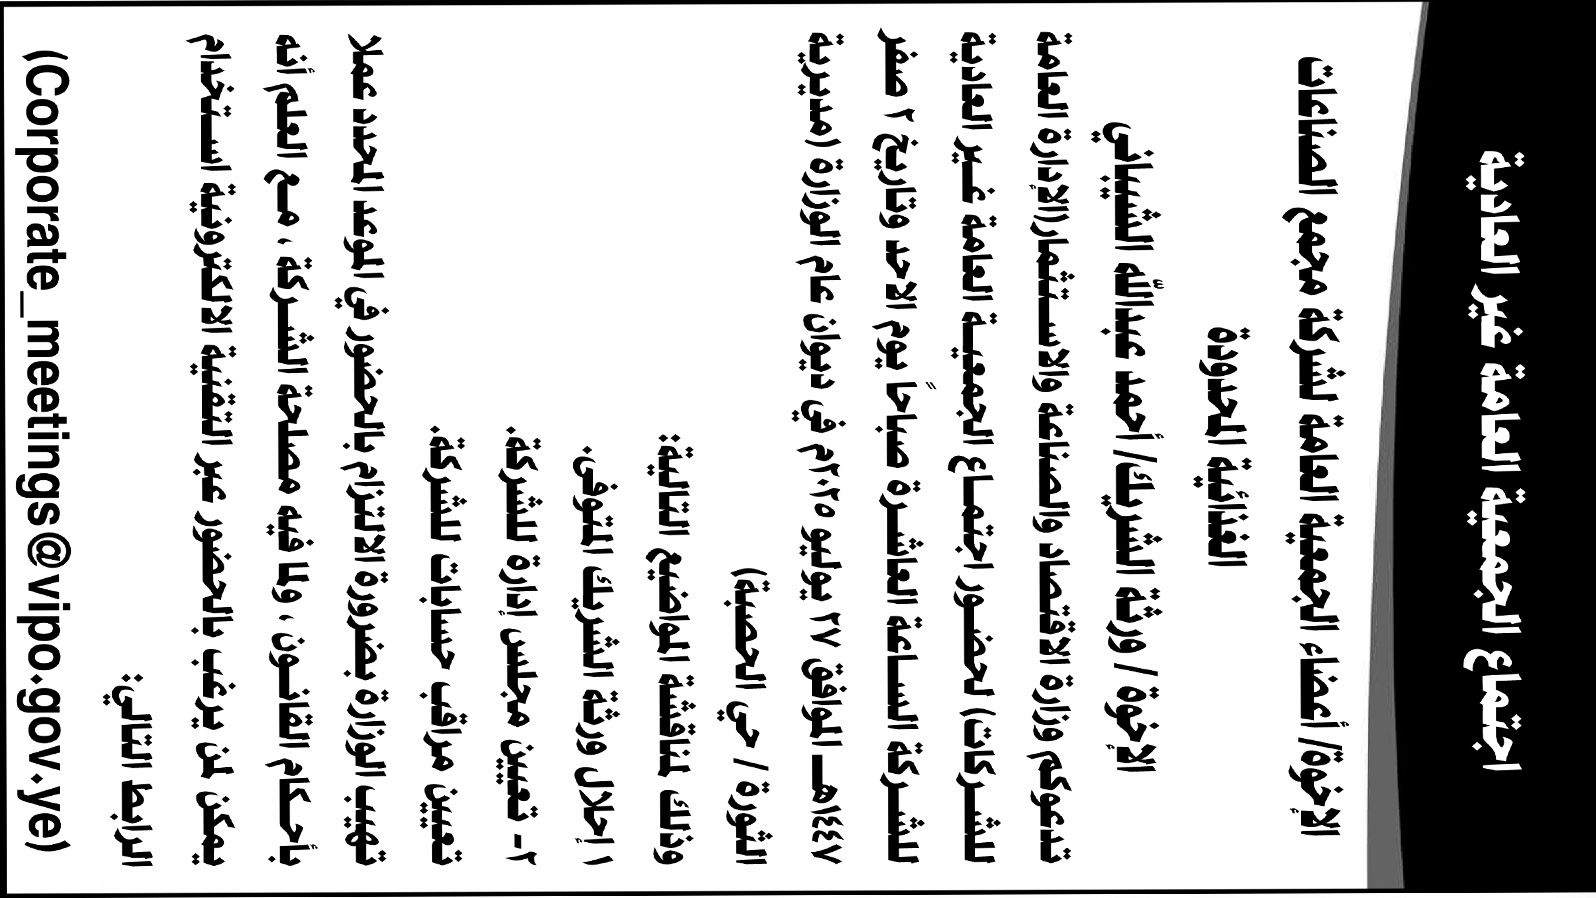 اجتماع الجمعية العامة غير العادية
الإخوة/ أعضاء الجمعية العامة لشركة مجمع الصناعات
الغذائية المحدودة
الإخوة / ورثة الشريك/ أحمد عبدالله الشيباني
تدعوكم وزارة الاقتصاد والصناعة والاستثمار(الإدارة العامة
للشركات) لحضور اجتماع الجمعية العامة غير العادية
للشركة الساعة العاشرة صباحاً يوم الاحد وتاريخ ٢ صفر
١٤٤٧هـ الموافق ٢٧ يوليو ٢٠٢٥م في ديوان عام الوزارة (مديرية
الثورة / حي الحصبة)
وذلك لمناقشة المواضيع التالية:
١ إحلال ورثة الشريك المتوفى.
٢- تعيين مجلس إدارة للشركة.
تعيين مراقب حسابات للشركة.
تهيب الوزارة بضرورة الالتزام بالحضور في الموعد المحدد عملا
بأحكام القانون ، ولما فيه مصلحة الشركة ، مع العلم أنه
يمكن لمن يرغب بالحضور عبر التقنية الالكترونية استخدام
الرابط التالي:
(Corporate_meetings@vipo.gov.ye)